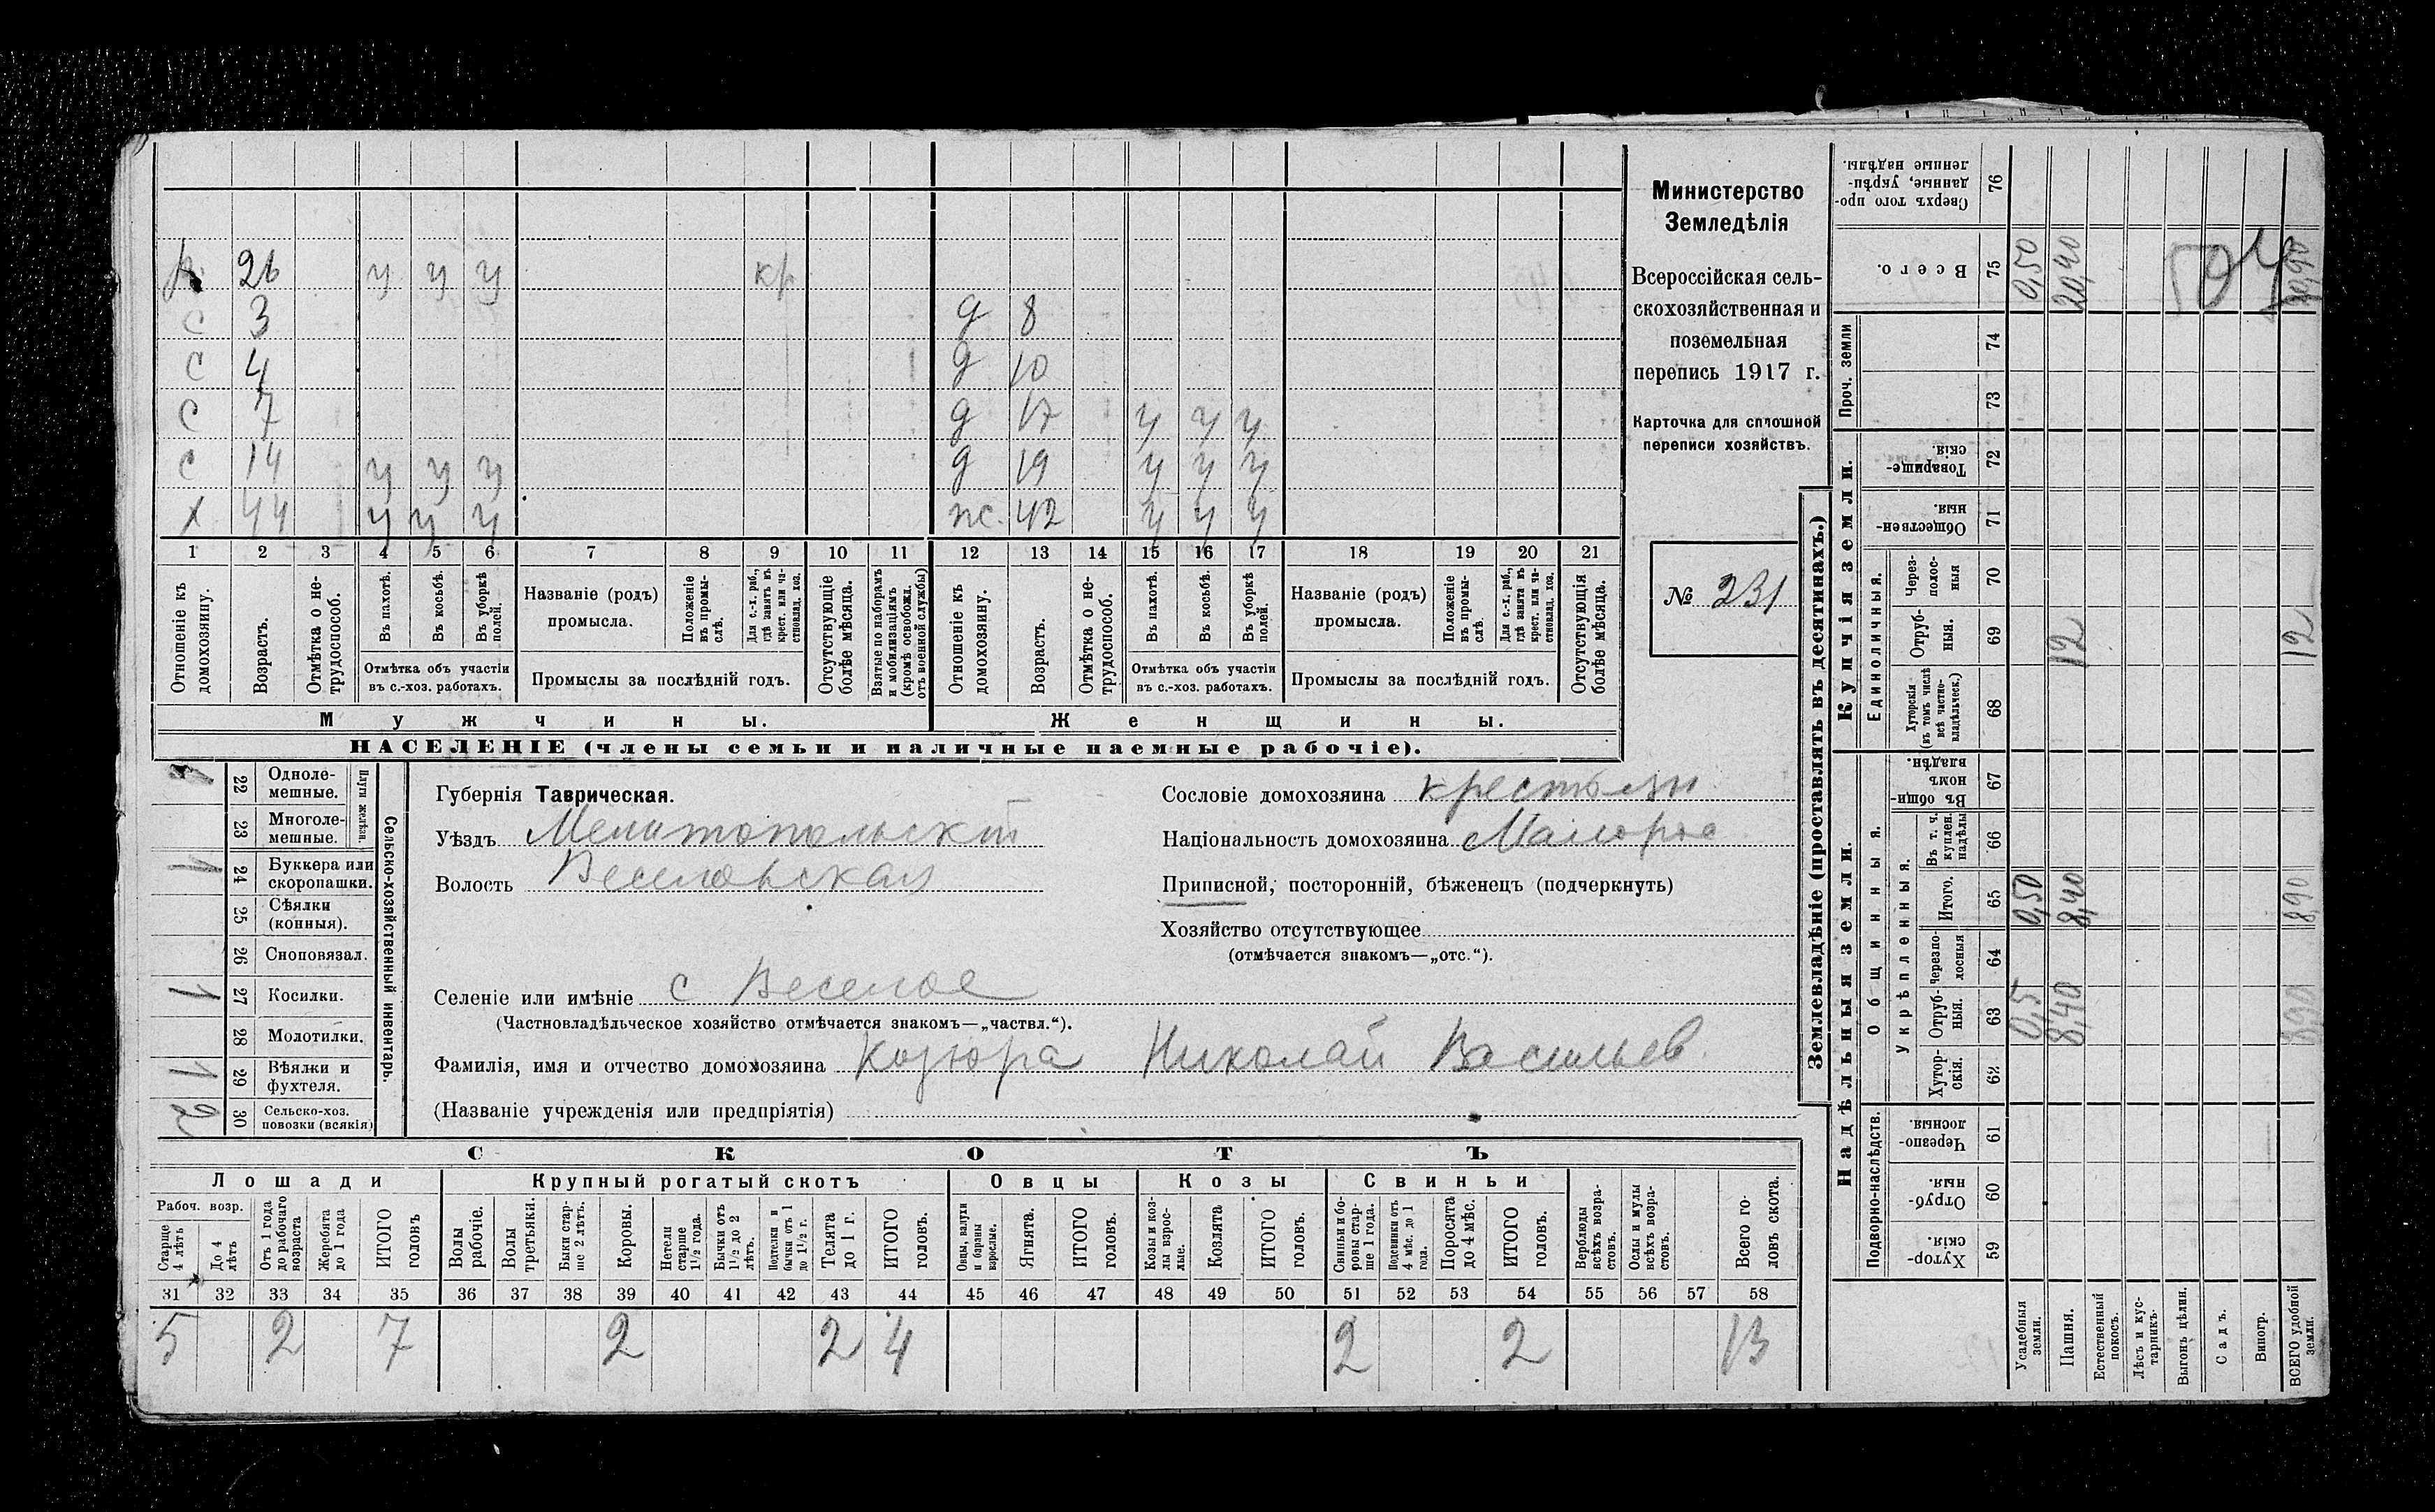 р. 26 у у у кр
с 3 д 8
с 4 д 10
с 7 д 17 у у у
с 14 у у у д 19 у у у
х 44 у у у ж. 42 у у у
1 2 3 4 5 6 7 8 9 10 11 12 13 14 15 16 17 18 19 20 21
Отношеніе къ домохозяину.
Возрастъ.
Отмѣтка о нетрудоспособ.
Въ пахотѣ.
Въ косьбѣ.
Въ уборкѣ полей.
Отмѣтка объ участіи
въ с.-хоз. работахъ.
Названіе (родъ)
промысла.
Положеніе въ промыслѣ.
Для с.-х. раб., гдѣ занятъ въ крест. или частновлад. хоз.
Промыслы за послѣдній годъ.
Отсутствующіе болѣе мѣсяца.
Взятые по наборамъ и мобилизаціямъ (кромѣ освобожд. отъ военной службы)
Отношеніе къ домохозяину.
Возрастъ.
Отмѣтка о нетрудоспособ.
Въ пахотѣ.
Въ косьбѣ.
Въ уборкѣ полей.
Отмѣтка объ участіи
въ с.-хоз. работахъ.
Названіе (родъ)
промысла.
Положеніе въ промыслѣ.
Для с.-х. раб., гдѣ занята въ крест. или частновлад. хоз.
Промыслы за послѣдній годъ.
Отсутствующія болѣе мѣсяца.
Мужчины. Женщины.
НАСЕЛЕНІЕ (члены семьи и наличные наемные рабочіе).
Министерство
Земледѣлія
Всероссійская сель-
скохозяйственная и
поземельная
перепись 1917 г.
Карточка для сплошной
переписи хозяйствъ.
№ 231
Сельско-хозяйственный инвентарь.
Плуги желѣзн.
1 22 Одноле-
мешные.
23 Многоле-
мешные.
1 24 Буккера или
скоропашки.
25 Сѣялки
(конныя).
26 Сноповязал.
1 27 Косилки.
28 Молотилки.
1 29 Вѣялки и
фухтеля.
2 30 Сельско-хоз.
повозки (всякія)
Губернія Таврическая.
Уѣздъ Мелитопольскій
Волость Веселовская
Сословіе домохозяина крестьян
Національность домохозяина Малорос
Приписной, посторонній, бѣженецъ (подчеркнуть)
Хозяйство отсутствующее
(отмѣчается знакомъ—„отс.“).
Селеніе или имѣніе с Веселое
(Частновладѣльческое хозяйство отмѣчается знакомъ—„частвл.“).
Фамилія, имя и отчество домохозяина Козюра Николай Васильев
(Названіе учрежденія или предпріятія)
СКОТЪ
Лошади Крупный рогатый скотъ Овцы Козы Свиньи
Рабоч. возр.
Старше 4 лѣтъ
До 4 лѣтъ
Отъ 1 года до рабочаго возраста
Жеребята до 1 года
ИТОГО головъ
Волы рабочіе.
Волы третьяки.
Быки старше 2 лѣтъ.
Коровы.
Нетели старше 1½ года.
Бычки отъ 1½ до 2 лѣтъ.
Подтелки и бычки отъ 1 до 1½ г.
Телята до 1 г.
ИТОГО головъ.
Овцы, валухи и бараны взрослые.
Ягнята.
ИТОГО головъ.
Козы и козлы взрослые.
Козлята
ИТОГО головъ.
Свиньи и боровы старше 1 года.
Подсвинки отъ 4 мѣс. до 1 года.
Поросята до 4 мѣс.
ИТОГО головъ.
Верблюды всѣхъ возрастовъ.
Ослы и мулы всѣхъ возрастовъ.
Всего головъ скота.
31 32 33 34 35 36 37 38 39 40 41 42 43 44 45 46 47 48 49 50 51 52 53 54 55 56 57 58
5 2 7 2 2 4 2 2 13
Землевладѣніе (проставлять въ десятинахъ.)
Надѣльныя земли. Купчія земли. Проч. земли
Подворно-наслѣдств. Общинныя. Единоличныя.
Укрѣпленныя.
Сверхъ того проданные, укрѣпленные надѣлы. 76
Всего. 75 0,50 20,40 20,90
504
74
73
Товарищескія. 72
Общественныя. 71
Черезполосныя 70
Отрубныя. 69 12 12
Хуторскія (въ томъ числѣ всѣ частновладѣльческ.) 68
Въ общинномъ владѣн. 67
Въ т. ч. куплен. надѣлы 66
Итого. 65 0,50 8,40 8,90
черезполосныя 64
Отрубныя. 63 0,5 8,40 8,90
Хуторскія. 62
Черезполосныя. 61
Отрубныя. 60
Хуторскія. 59
Усадебныя земли.
Пашня.
Естественный покосъ.
Лѣсъ и кустарникъ.
Выгонъ цѣлин.
Садъ.
Виногр.
ВСЕГО удобной земли.